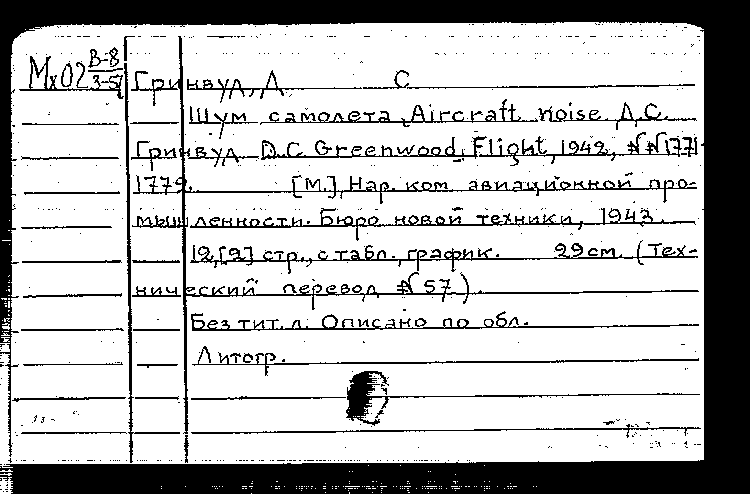 Мх02 В-8
3-57
Гринвуд, Д С
Шум самолета, Aircraft noise. Д.С.
Гринвуд. D.C. Greenwood. Flight, 1942, №№1771-
1779. [М.], Нар. ком. авиационной про-
мышленности. Бюро новой техники, 1943.
12,[2] стр., с табл., график. 29см. (Тех-
нический перевод № 57).
Без тит. л. Описано по обл.
Литогр.